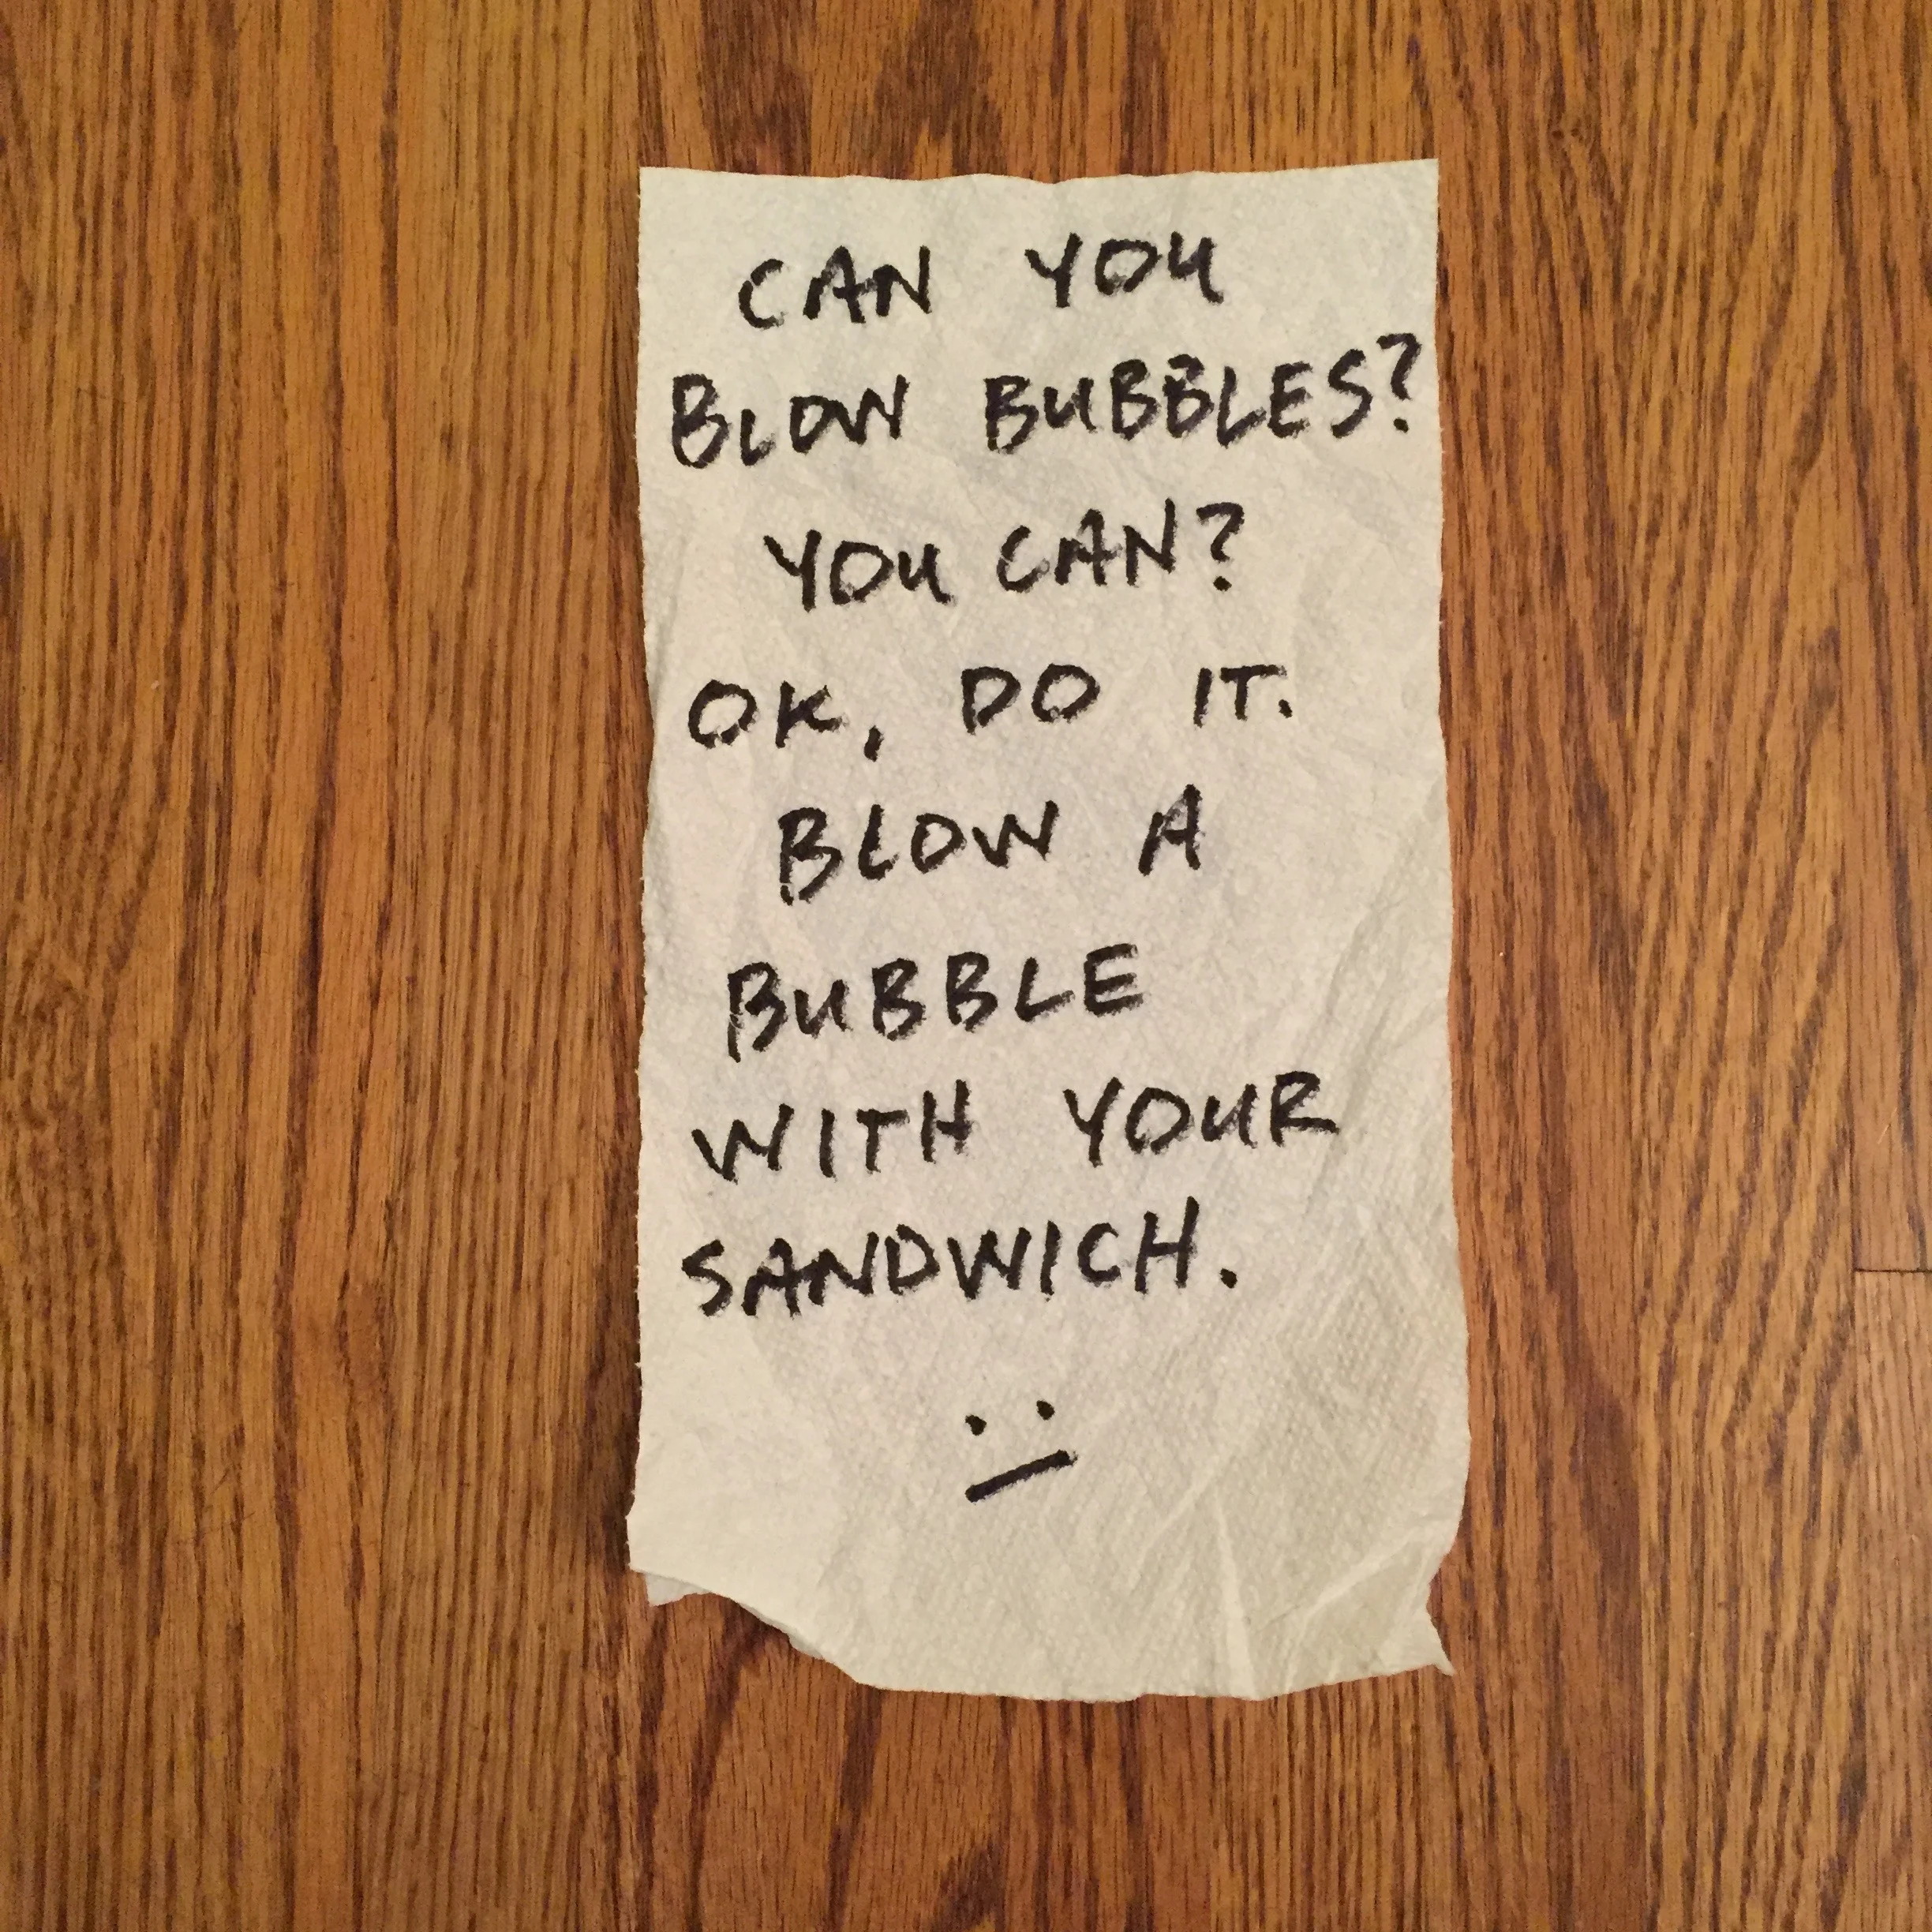 CAN YOU
BLOW BUBBLES?
YOU CAN?
OK, DO IT.
BLOW A
BUBBLE
WITH YOUR
SANDWICH.